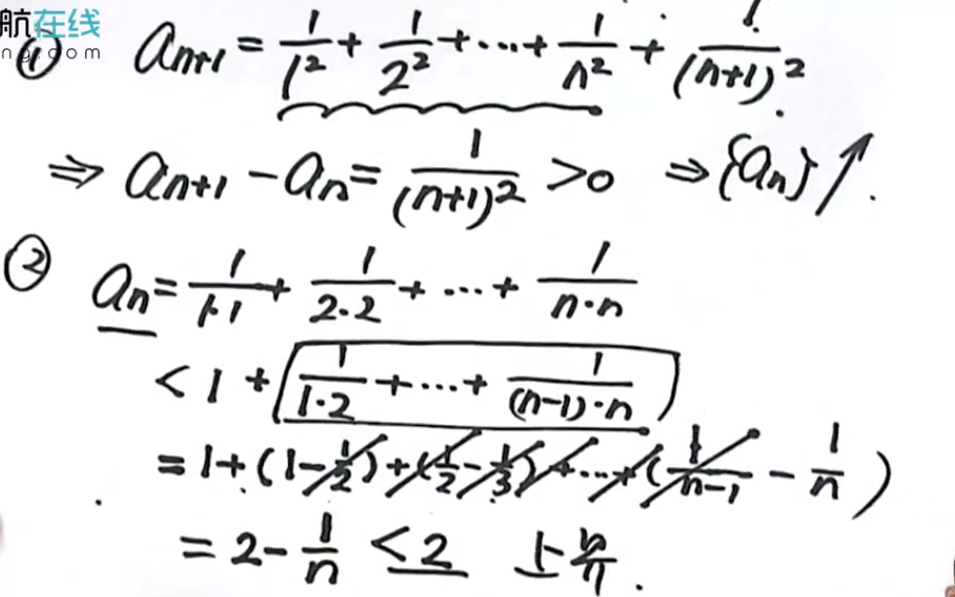 航在线
ng.com
① aₙ₊₁ = 1/1² + 1/2² + ... + 1/n² + 1/(n+1)²
⇒ aₙ₊₁ - aₙ = 1/(n+1)² > 0 ⇒ {aₙ}↑.
② aₙ = 1/1·1 + 1/2·2 + ... + 1/n·n
< 1 + (1/1·2 + ... + 1/(n-1)·n)
= 1 + (1 - 1/2) + (1/2 - 1/3) + ... + (1/n-1 - 1/n)
= 2 - 1/n < 2 上界.